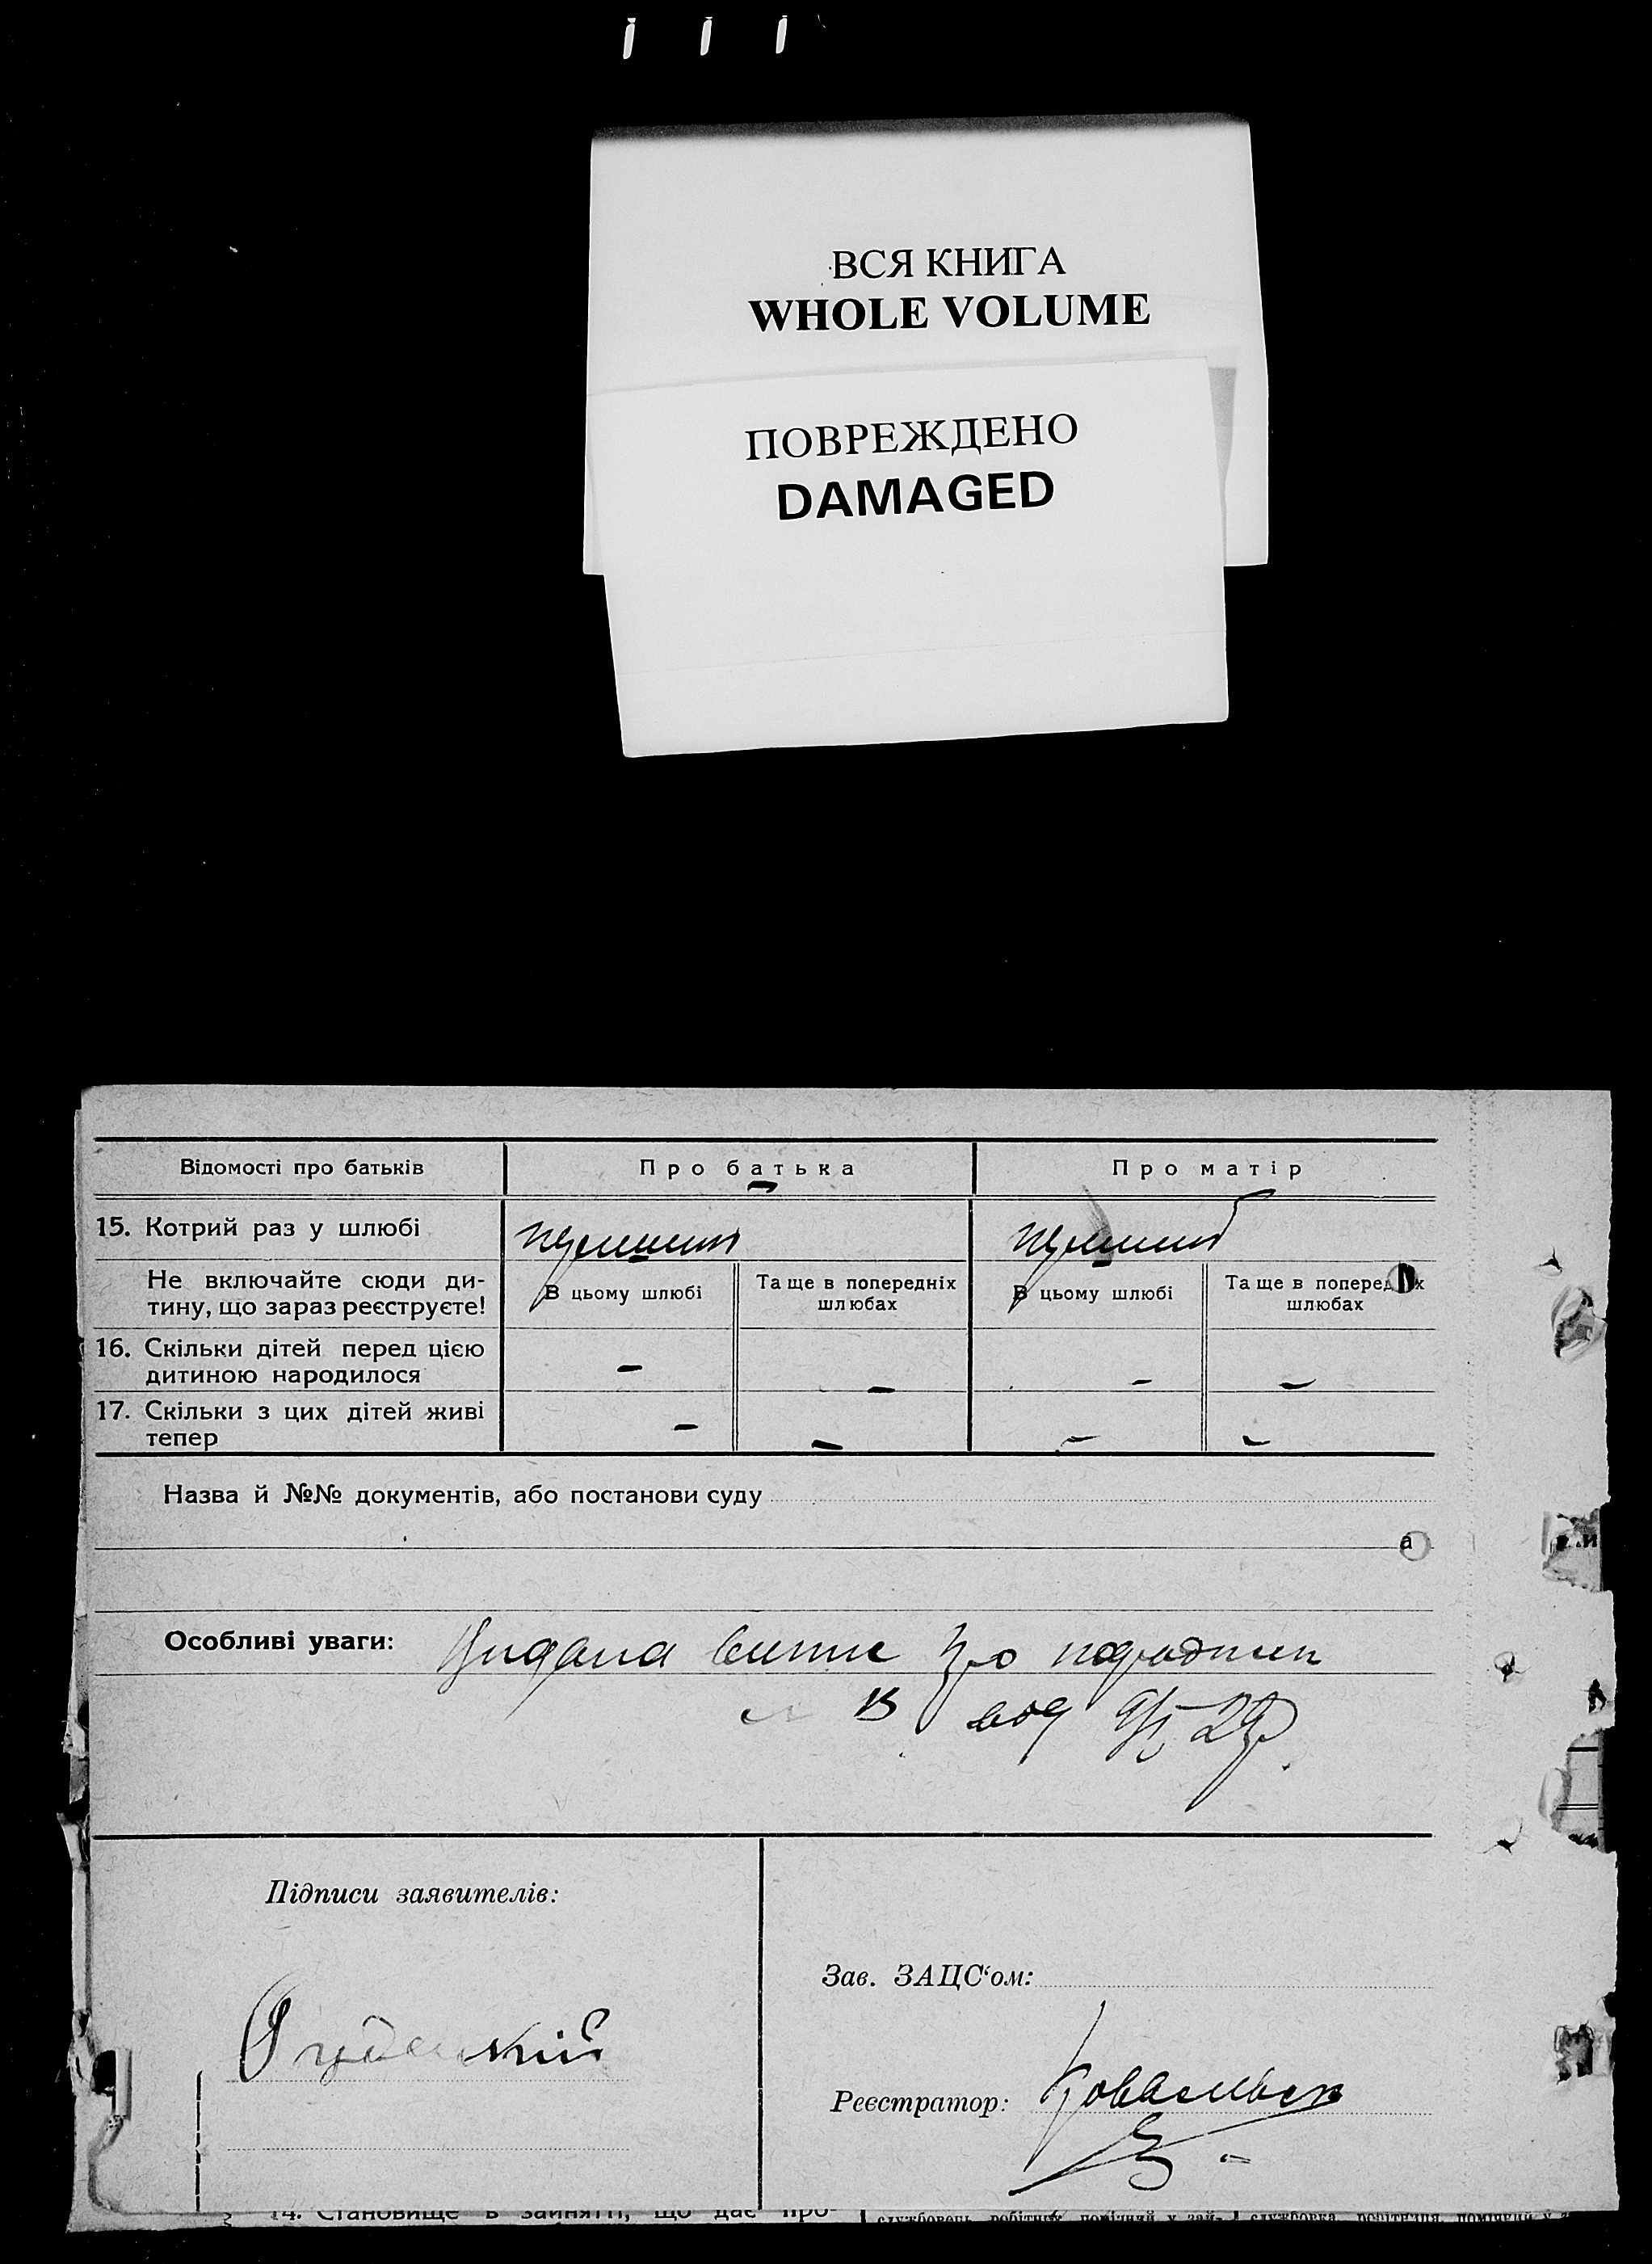 ВСЯ КНИГА
WHOLE VOLUME
ПОВРЕЖДЕНО
DAMAGED
Відомості про батьків
Про батька
Про матір
15. Котрий раз у шлюбі
Не включайте сюди ди-
тину, що зараз реєструєте!
В цьому шлюбі
Та ще в попередніх
шлюбах
В цьому шлюбі
Та ще в попередніх
шлюбах
16. Скільки дітей перед цією
дитиною народилося
– – – –
17. Скільки з цих дітей живі
тепер
– – – –
Назва й №№ документів, або постанови суду
а
Особливі уваги: Видана про
від
Підписи заявителів:
Зав. ЗАЦС‘ом:
Реєстратор:
14. Становище в занятті, що дає про-
службовець, робітник, помічний у зай-